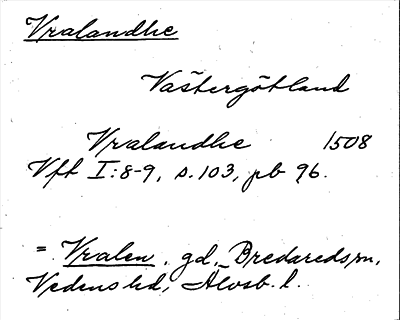 Vralandhe
Västergötland
Vralandhe 1508
Vft I:8-9, s. 103, pb 96.
= Vralen, gd, Bredareds sn,
Vedens hd, Älvsb. l.